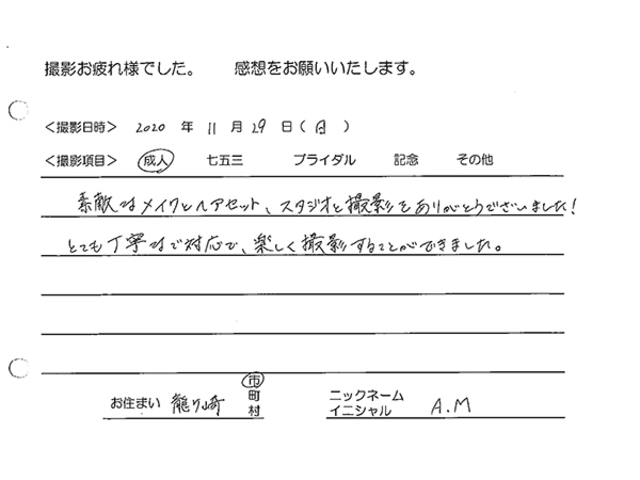 撮影お疲れ様でした。 感想をお願いいたします。
<撮影日時> 2020 年 11 月 29 日 ( 日 )
<撮影項目> 成人 七五三 ブライダル 記念 その他
素敵なメイクとヘアセット、スタジオと撮影をありがとうございました!
とても丁寧なご対応で、楽しく撮影することができました。
お住まい 龍ヶ崎 市 町 村
ニックネーム イニシャル A.M